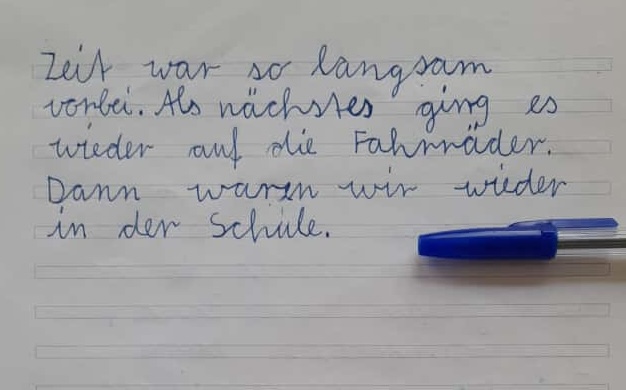 Zeit war so langsam
vorbei. Als nächstes ging es
wieder auf die Fahrräder.
Dann waren wir wieder
in der Schule.